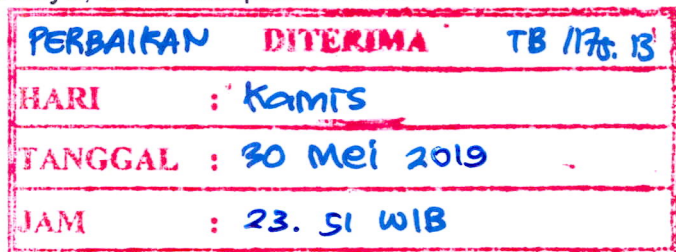 PERBAIKAN DITERIMA TB
HARI : Kamis
TANGGAL : 30 Mei 2019
JAM : 23.51 WIB